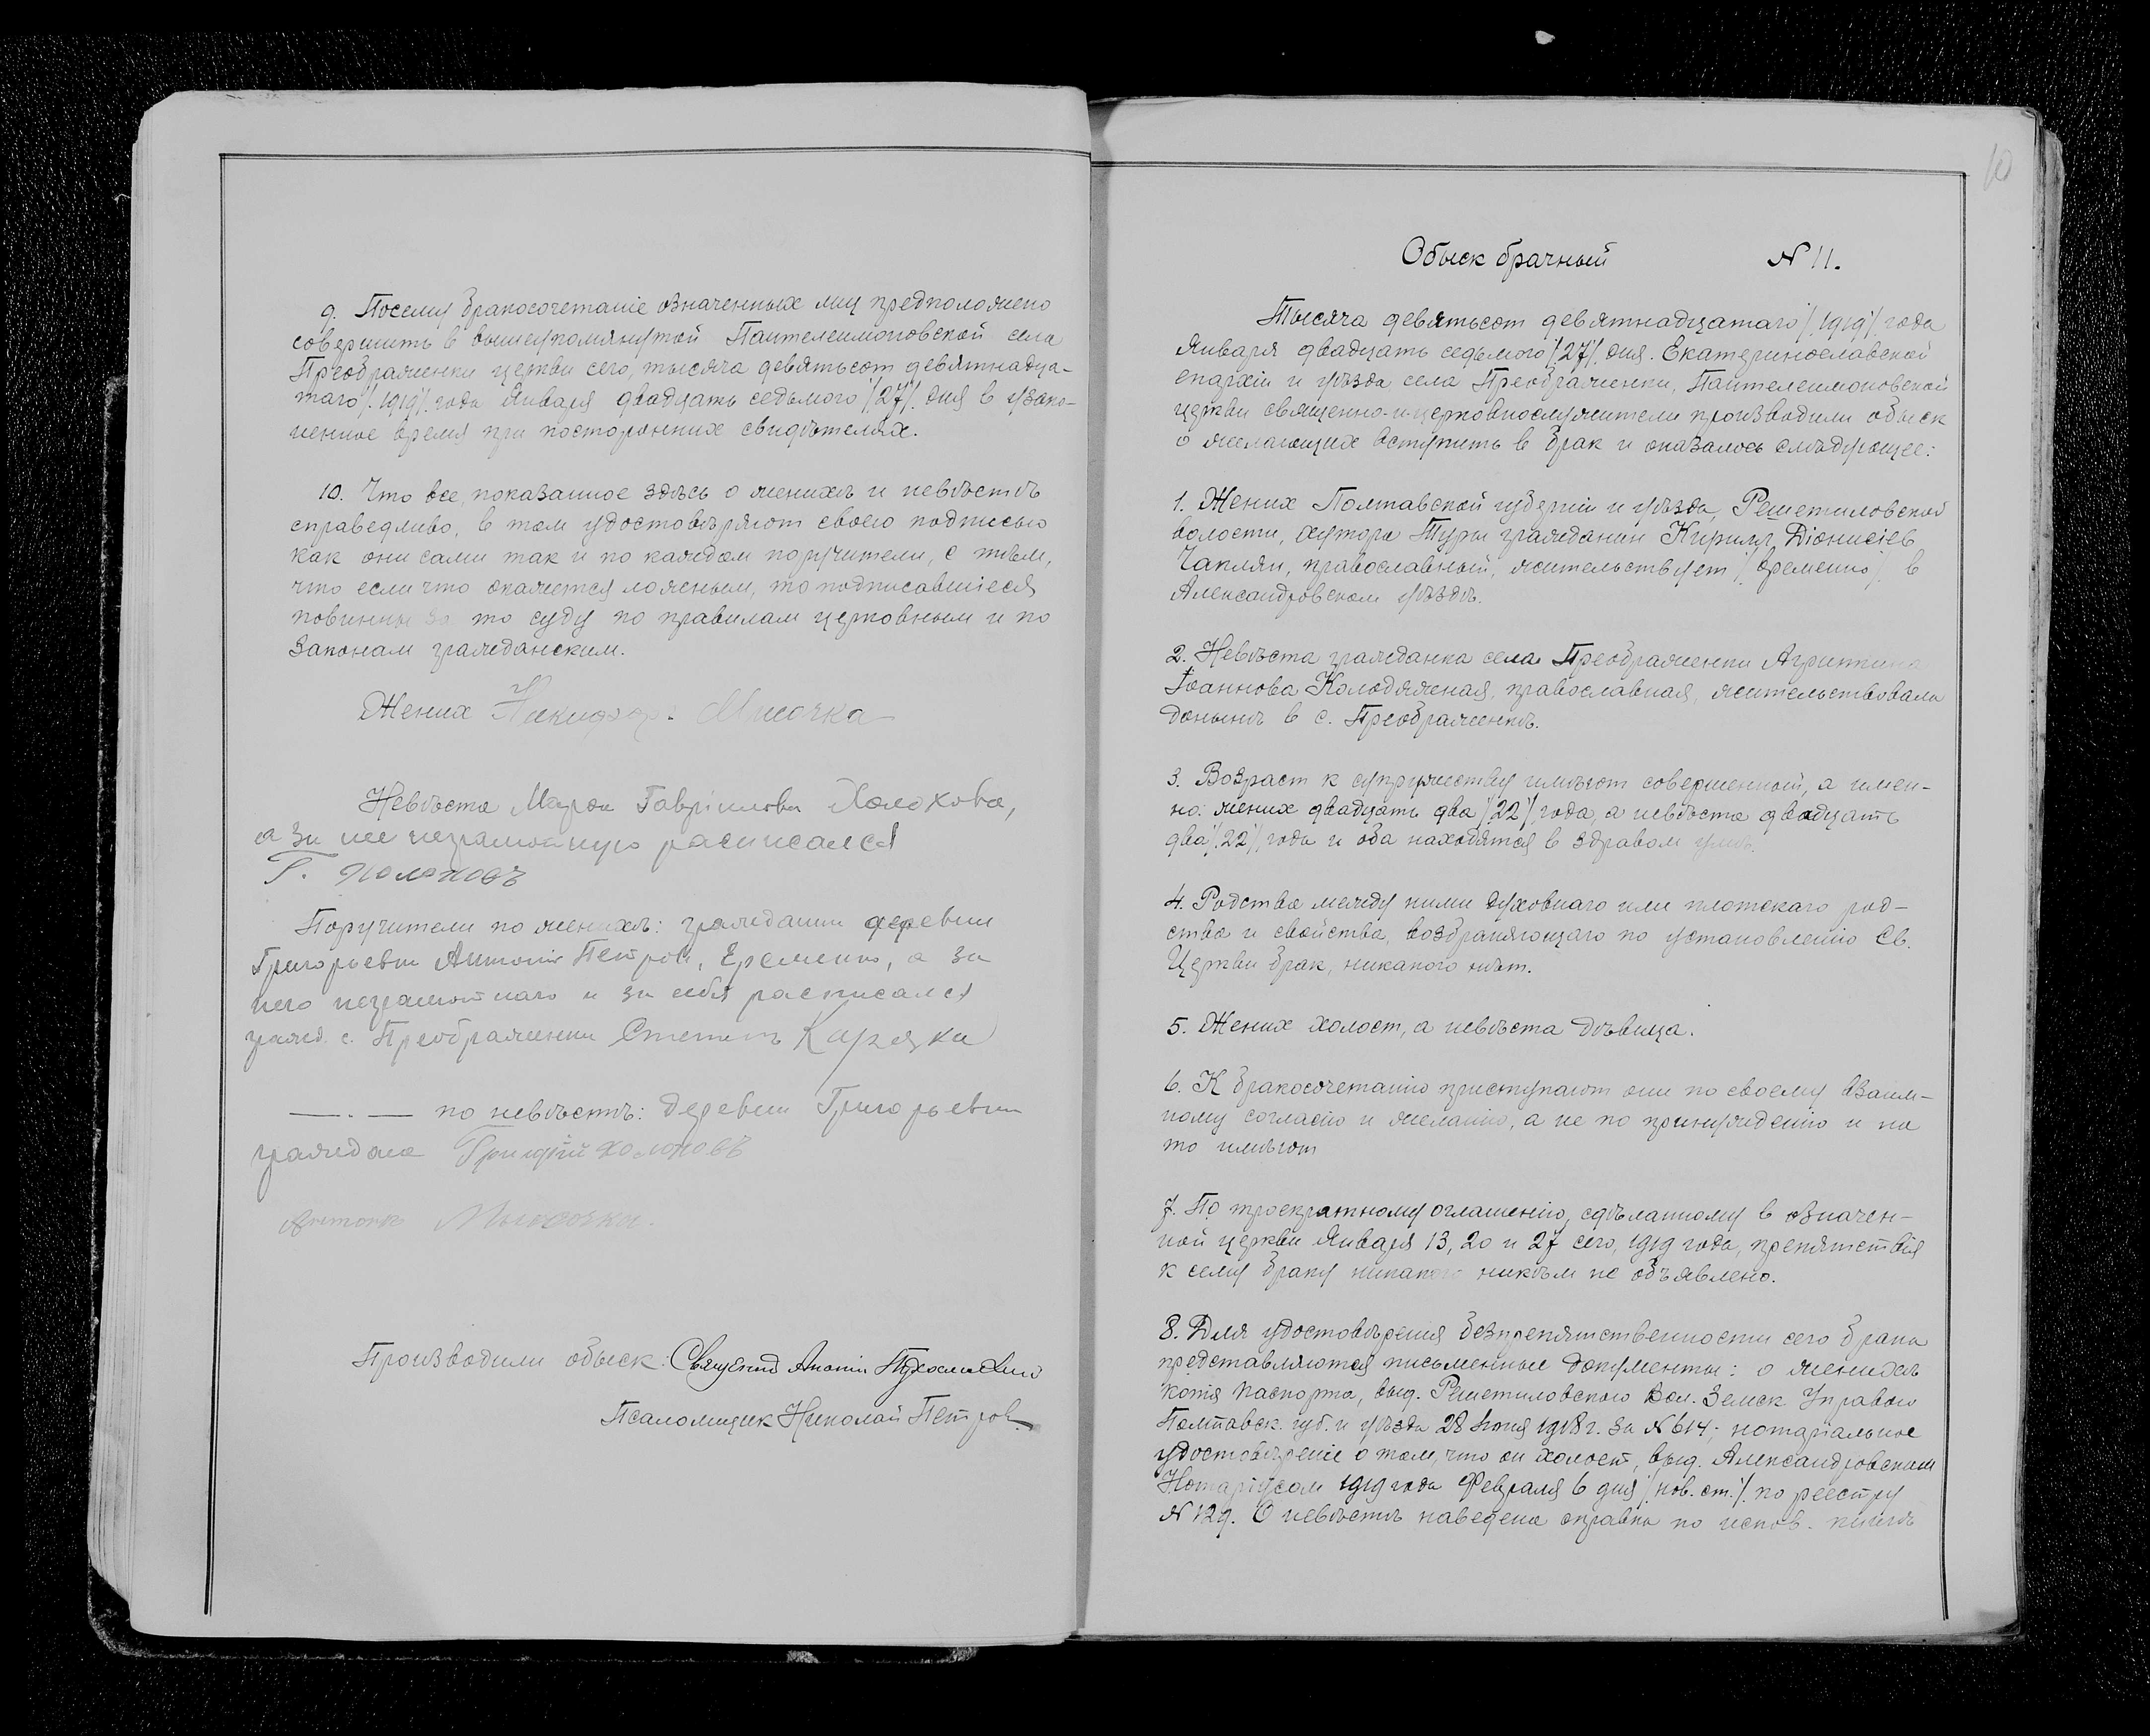 9. Посему бракосочетаніе означенных лиц предположено
совершить в вышеупомянутой Пантелеимоновской села
Преображенки церкви сего, тысяча девятьсот девятнадца-
таго /.1919/. года Января двадцать седьмого /.27/. дня в узако-
ненное время при посторонних свидѣтелях.
10. Что все, показанное здѣсь о женихѣ и невѣстѣ
справедливо, в том удостовѣряют своею подписью
как они сами так и по каждом поручители, с тѣм,
что если что окажется ложным, то подписавшіеся
повинны за то суду по правилам церковным и по
законам гражданским.
Жених Никифор Мисочка
Невѣста Марѳа Гавріилова Холохова,
а за нее неграмотную расписался
Г.
Поручители по женихѣ: гражданин деревни
Григорьевки Антоній Петров, Еременко, а за
него неграмотнаго и за себя расписался
гражд. с. Преображенки Степанъ Карзяка
—.— по невѣстѣ: деревни Григорьевки
граждане
Производили обыск: Священник Ананія
Псаломщик Николай Петров
10
Обыск брачный N 11.
Тысяча девятьсот девятнадцатаго /.1919/. года
Января двадцать седьмого /.27/. дня. Екатеринославской
епархіи и уѣзда села Преображенки, Пантелеимоновской
церкви священно-и-церковнослужители производили обыск
о желающих вступить в брак и оказалось слѣдующее:
1. Жених Полтавской губерніи и уѣзда, Решетиловской
волости, хутора Туры гражданин Кирилл Діонисіев
Чаплян, православный, жительствует /.временно/. в
Александровском уѣздѣ.
2. Невѣста гражданка села Преображенки Агриппина
Іоаннова Колодяжная, православная, жительствовала
донынѣ в с. Преображенкѣ.
3. Возраст к супружеству имѣют совершенный, а имен-
но: жених двадцать два /.22/. года, а невѣста двадцать
два /.22/. года и оба находятся в здравом умѣ.
4. Родства между ними духовнаго или плотскаго род-
ства и свойства, возбраняющаго по установленію Св.
Церкви брак, никакого нѣт.
5. Жених холост, а невѣста дѣвица.
6. К бракосочетанію приступают они по своему взаим-
ному согласію и желанію, а не по принужденію и на
то имѣют
7. По троекратному оглашенію, сдѣланному в означен-
ной церкви Января 13, 20 и 27 сего, 1919 года, препятствія
к сему браку никакого никѣм не объявлено.
8. Для удостовѣренія безпрепятственности сего брака
представляются письменные документы: о женихѣ
копія паспорта, выд. Решетиловскою Вол. Земск. Управою
Полтавск. губ. и уѣзда 28 Іюня 1918 г. за N 614; нотаріальное
удостовѣреніе о том, что он холост, выд. Александровским
Нотаріусом 1919 года Февраля 6 дня /.нов. ст./. по реестру
N 129. О невѣстѣ наведена справка по испов. книгѣ